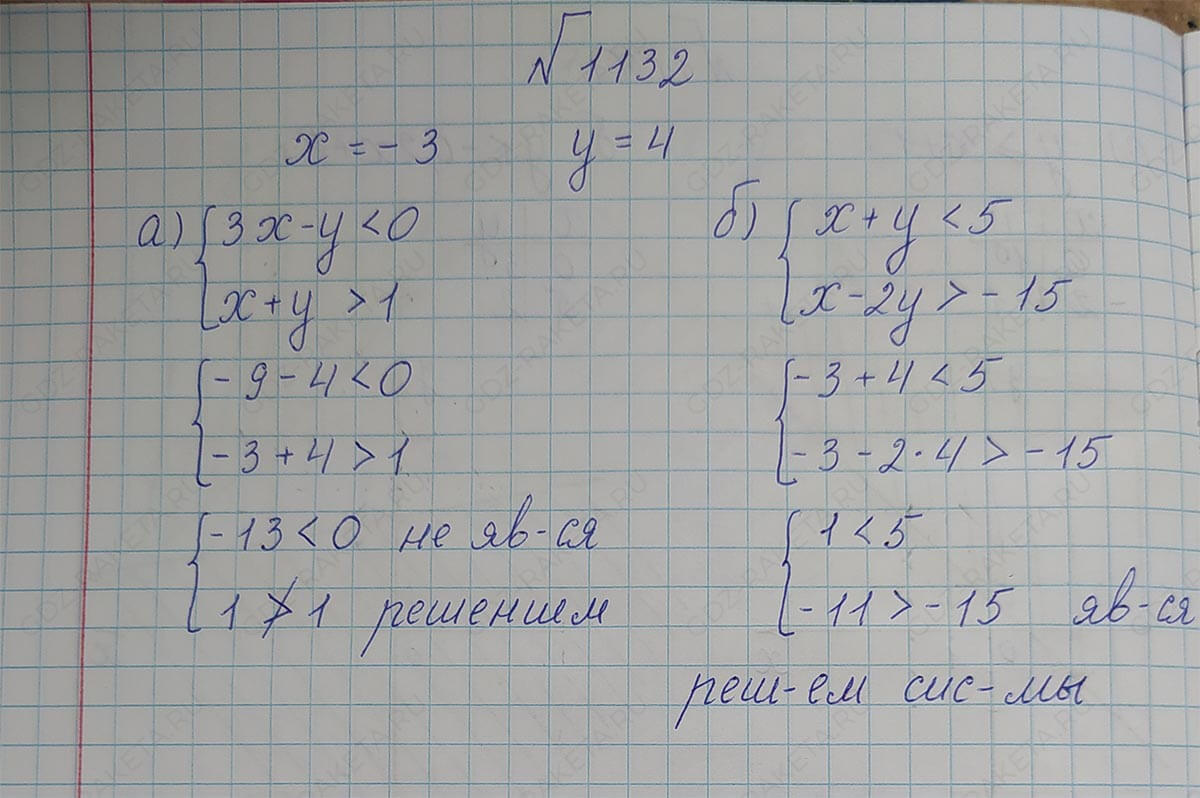 √1132
x = -3 y = 4
а) { 3x - y < 0
x + y > 1
{ -9 - 4 < 0
-3 + 4 > 1
{ -13 < 0 не яв-ся
1 ≯ 1 решением
б) { x + y < 5
x - 2y > -15
{ -3 + 4 < 5
-3 - 2·4 > -15
{ 1 < 5
-11 > -15 яв-ся
реш-ем сис-мы
GDZ-RAKETA.RU